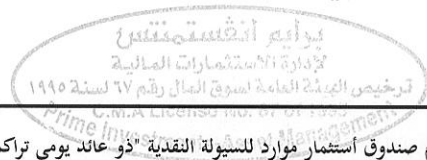 برايم انفستمنتس
لإدارة الاستثمارات المالية
ترخيص الهيئة العامة لسوق المال رقم ٦٧ لسنة ١٩٩٥
C.M.A License No. 67 Of 1995
Prime Investments Asset Management
صندوق أستثمار موارد للسيولة النقدية "ذو عائد يومى تراك